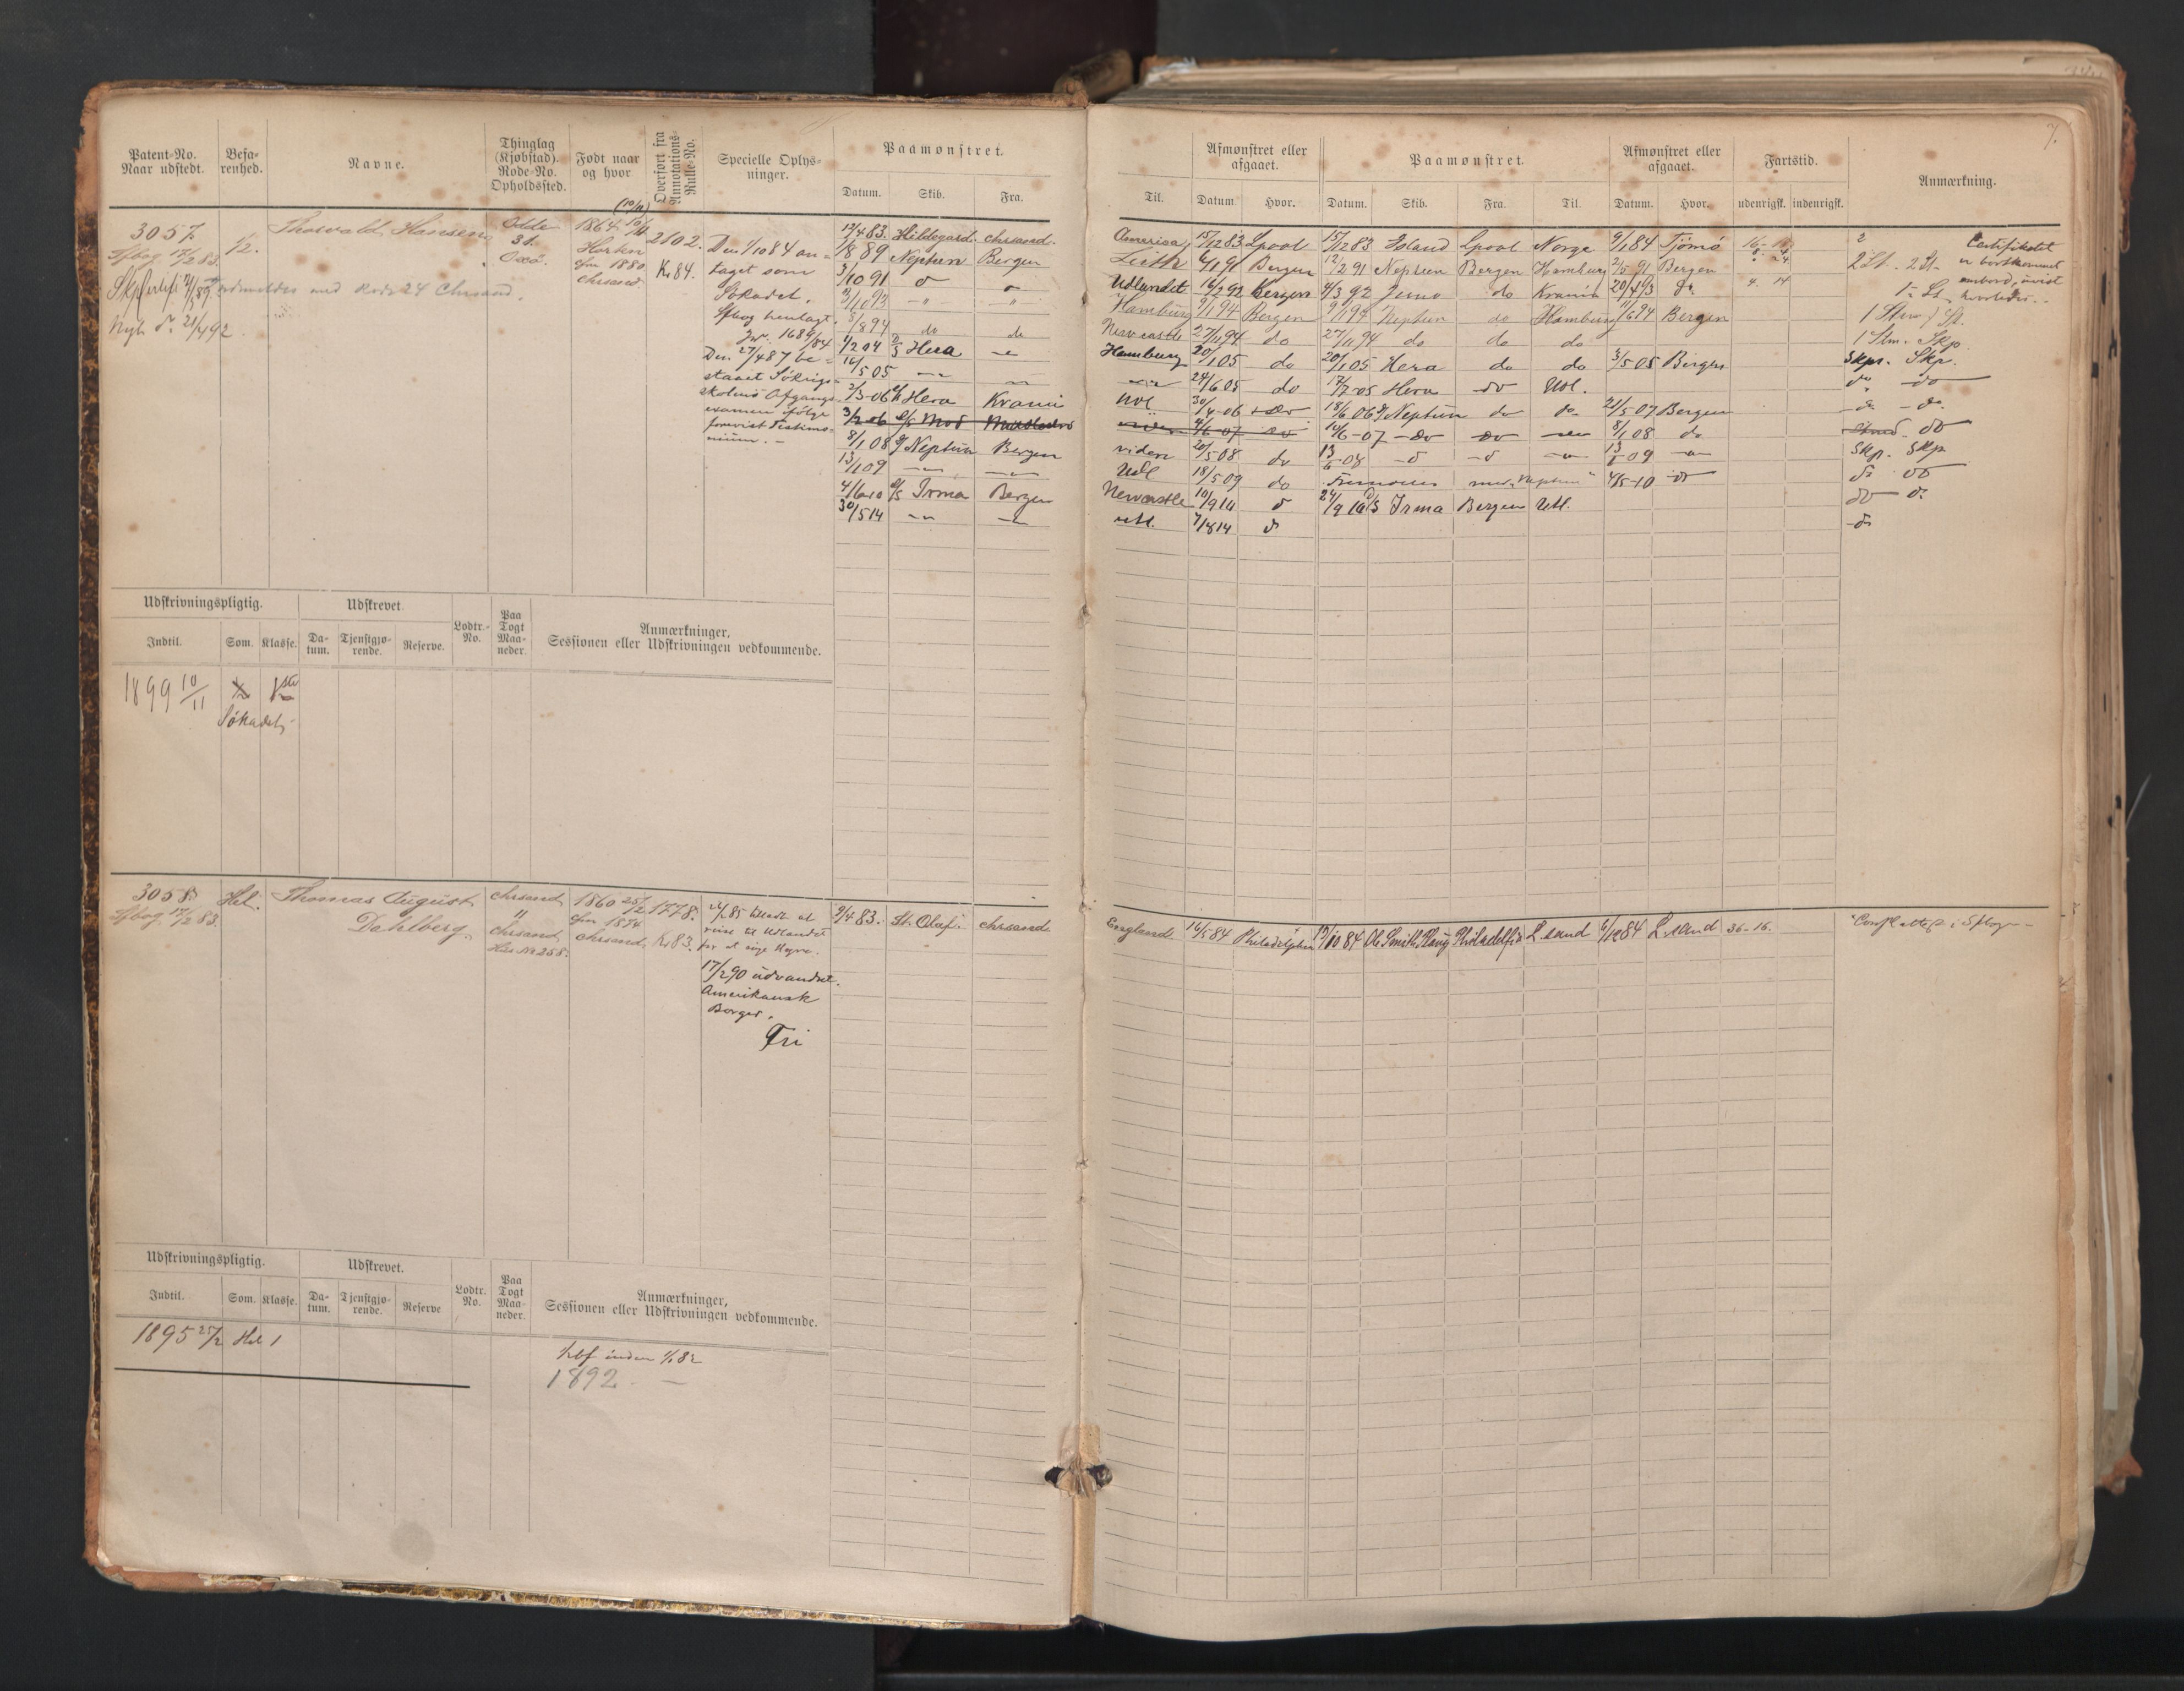 7.
Patent-No.
Naar udstedt.
Befa-
renhed.
Navne.
Thinglag
(Kjøbstad).
Rode-No.
Opholdssted.
Født naar
og hvor
Overført fra
Annotations-
Rulle-No.
Specielle Oplys-
ninger.
Paamønstret.
Datum. Skib. Fra.
Til.
Afmønstret eller
afgaaet.
Datum Hvor.
Paamønstret.
Datum. Skib. Fra. Til.
Afmønstret eller
afgaaet.
Datum. Hvor.
Fartstid.
udenrigsk. indenrigsk.
Anmærkning.
3057.
Sfbog 17/2 83.
1/2.
Thorvald Hansen
Odde
31.
Oxø.
1864 10/11
(10/11)
Chrsand.
2102.
K. 84.
Den 1/10 84 an-
taget som
Søkadet.
Sfbog henlagt.
Jr. 1689/84
Den 27/4 87 be-
staaet Søkrigs-
skolens Afgangs-
examen ifølge
forevist Testimo-
nium. -
Nyt do. 21/4 92
12/4 83. Hildegard. Chrsand. America 15/12 83 Lpool 15/12 83 Island Lpool Norge 9/1 84 Tjömö
1/8 89 Neptun Bergen Leith 6/1 91 Bergen 12/2 91 Neptun Bergen Hamburg 2/5 91 Bergen 2 St. 2 St.
3/10 91 Udlandet 16/2 92 Bergen 4/3 92 Juno do Krania 20/4 93 do
Certifikatet
er bortkommet
ombord, uvist
hvorledes.
Hamburg 9/1 94 Bergen 9/1 94 Neptun do Hamburg 11/6 94 Bergen
3/8 94 do do Newcastle 27/11 94 do 27/11 94 do do do 1 Stm. Skp.
1/2 04 D/S Hera Hamburg 20/1 05 do 20/1 05 Hera do do 3/5 05 Bergen Skps. Skp.
16/5 05 24/6 05 do 17/7 05 Hera do Udl. do do
2/3-06 Hera Krania Udl 30/4-06 do 18/6 06 Neptun do do 21/5 07 Bergen do - do.
10/6-07 do do 8/1 08 do do
8/1 08 Neptun Bergen viden 20/5 08 do Skp. Skp
13/1 09 Udl 18/5 09 do Fremdeles med "Neptun" 4/5-10 do do
4/6 10 D/S Irma Bergen Newcastle 10/9 10 do 24/9 10 D/S Irma Bergen Utl. do do
30/5 14 utl. 7/8 14 do do
Udskrivningspligtig.
Indtil. Som. Klasse.
Udskrevet.
Da-
tum. Tjenstgjø-
rende. Reserve.
Lodtr.-
No.
Paa
Togt
Maa-
neder.
Anmærkninger,
Sessionen eller Udskrivningen vedkommende.
1899 10/11
Søkadet
3058
Sfbog 17/2 83.
Hel.
Thomas August
Dahlberg.
Chrsand
"
Chrsand
Hus No 258.
1860 25/2
1874
Chrsand.
1778.
K. 83.
85 tilladt at
reise til Udlandet
for at søge Hyre.
17/2 90 udvandret.
Amerikansk
Borger.
Fri
9/4 83. St. Olaf. Chrsand.
England 16/5 84 Philadelphia 13/10 84 Ole Smith Ploug Philadelfia L.sand 6/12 84 L.sand 36-16.
Udskrivningspligtig.
Indtil. Som. Klasse.
Udskrevet.
Da-
tum. Tjenstgjø-
rende. Reserve
Lodtr.
No.
Paa
Togt
Maa-
neder.
Anmærkninger,
Sessionen eller Udskrivningen vedkommende.
1895 25/2 Hel 1
1892 -